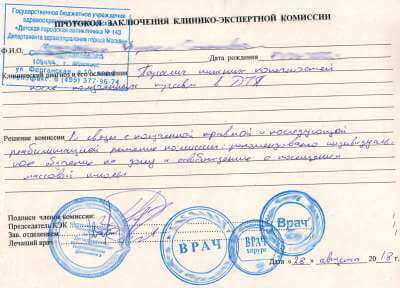 ПРОТОКОЛ ЗАКЛЮЧЕНИЯ КЛИНИКО-ЭКСПЕРТНОЙ КОМИССИИ
Государственное бюджетное учреждение
здравоохранения
«Детская городская поликлиника № 143
Департамента здравоохранения города Москвы»
109444, г. Москва
ул. Ферганская
Тел./факс: 8 (495) 377-96-74
Ф.И.О.
Дата рождения
Клинический диагноз и его осложнения Паралич нижних конечностей
после полученных травм в ДТП
Решение комиссии В связи с полученной травмой и последующей
реабилитацией решение комиссии: рекомендовано индивидуаль-
ное обучение на дому и освобождение о посещения
массовой школы
Подписи членов комиссии:
Председатель КЭК
Зав. отделением
Лечащий врач
ВРАЧ
Врач
хирург
Врач
Дата «28» августа 2018 г.